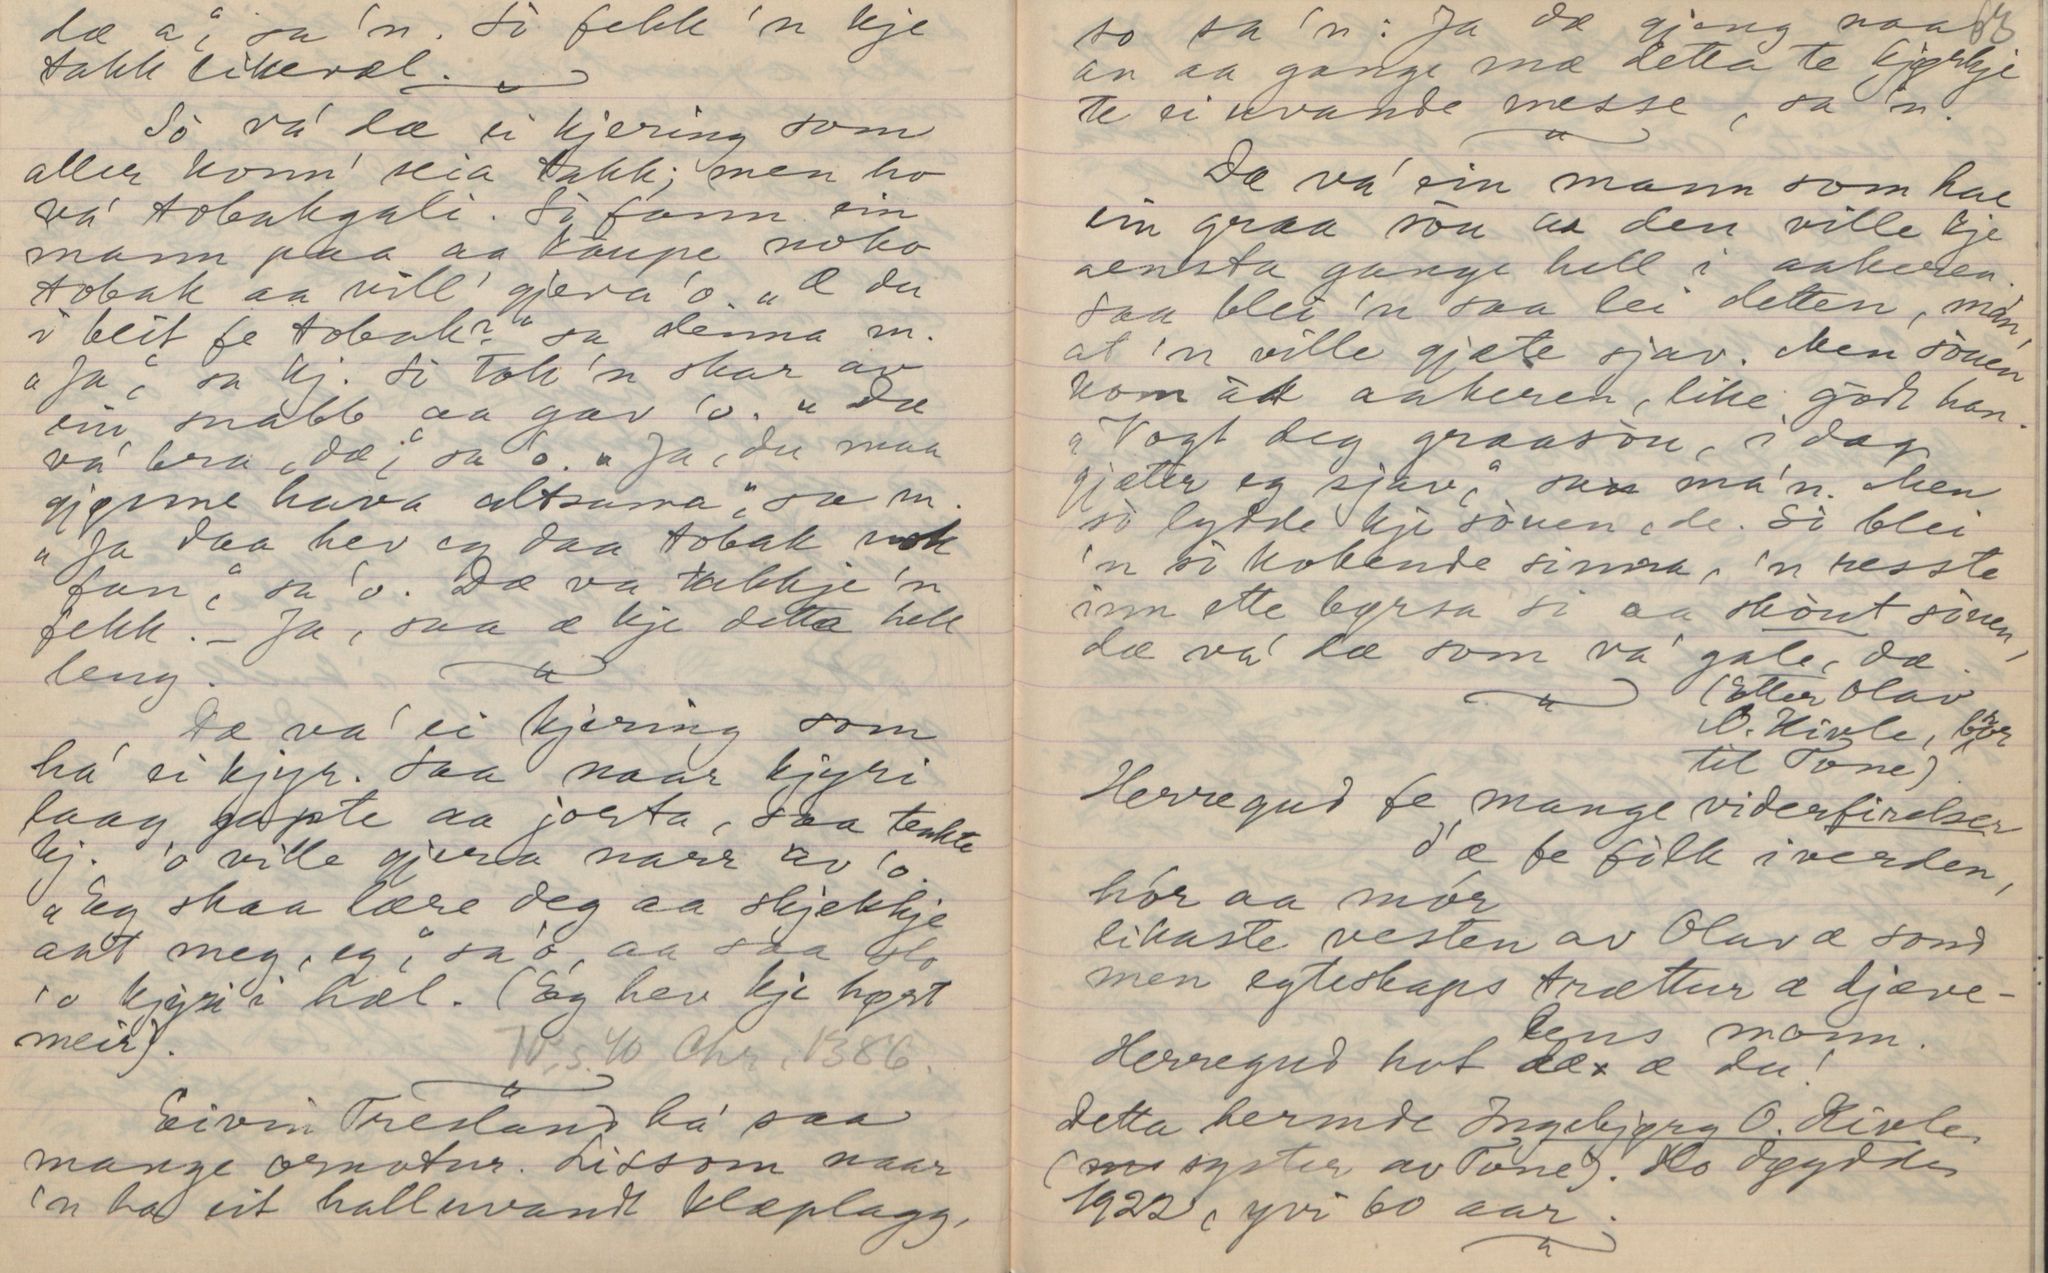 dæ a", sa 'n. Så fekk 'n kje
takk likevæl.
Sò vá dæ ei kjering som
aller konn' seia takk; men ho
vá tobakgali. Så fann ein
mann paa aa kaupe noko
tobak aa vill' gjeva 'o. "Æ du
i beit fe tobak?" sa denna m.
"Ja", sa kj. Så tok 'n skar av
ein snabb aa gav 'o. "Dæ
vá bra, dæ", sa 'o. "Ja, du maa
gjønne hava altsama", sa m.
"Ja daa hev eg daa tobak nok
fan", sa 'o. Dæ va takkje 'n
fekk. – Ja, saa æ kje detta hell
leng.
Dæ va' ei kjering som
há ei kjyr. Saa naar kjyri
laag gapte aa jorta, saa tenkte
kj. 'o ville gjera narr av 'o.
"Eg skaa lære deg aa skjekkje
aat meg, eg", sa 'o, aa saa slo
'o kjyri i hæl. (Eg hev kje hørt
meir).
N.s. 40 Chr. 1386.
Eivin Tresland há saa
mange ornotur. Lissom naar
'n ha eit halluvandt klæplagg,
63
so sa 'n: Ja dæ gjeng naa
an aa gange mæ detta te kjørkje
te ei uvande messe, sa 'n.
Dæ vá ein mann som hae
ein graa söu aa den ville kje
aensta gange hell i aakeren.
Saa blei 'n saa lei detten, man,
at 'n ville gjæte sjav. Men söuen
kom åt aakeren, like godt han.
"Vogt deg graasöu, i dag
gjæter eg sjav", sa ma'n. Men
so lydde kje söuen, de. Så blei
'n så kobende sinna, 'n resste
inn ette byrsa si aa skòut söuen,
dæ vá dæ som vá gale, dæ.
(Etter Olav
O. Kivle, bror
til Tone)
Herregud fe mange viderfirelser
d'æ fe fólk i verden,
hór aa mór
likaste vesten av Olav æ sond
men egteskaps trættur æ djæve-
lens monn.
Herregud hot dæ æ du!
Detta hermde Ingebjørg O. Kivle
(syster av Tone). Ho døydde
1922, yvi 60 aar.